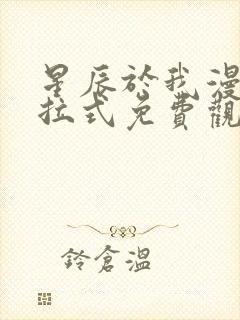 星辰於我漫
拉式免費觀
鈴倉溫